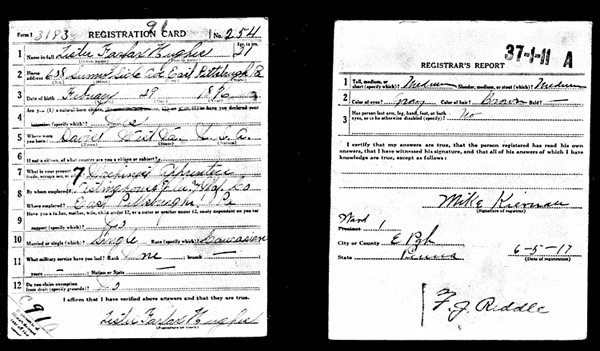 Form 1 3183 REGISTRATION CARD No. 254
1 Name in full Lister Farfax Hughes 21
2 Home address 638 Ave East Pittsburgh Pa
3 Date of birth February 29
4 Are you (1) a natural-born (3) or have you declared your
intention (specify which)? Yes
5 Where were you born? Davis West Van U.S.A.
6 If not a citizen, of what country are you a citizen or subject?
7 What is your present trade, occupation, or office? 7 Machinist Apprentice
8 By whom employed? Westinghouse Co
Where employed? East Pittsburgh Pa
9 Have you a father, mother, wife, child under 12, or a sister or brother under 12, solely dependent on you for
support (specify which)?
10 Married or single (which)? Single Race (specify which)? Caucasian
11 What military service have you had? Rank None branch —
years — Nation or State —
12 Do you claim exemption from draft (specify grounds)?
I affirm that I have verified above answers and that they are true.
Lister Farfax Hughes
(Signature or mark)
37-1-11 A
REGISTRAR'S REPORT
1 Tall, medium, or short (specify which)? Medium Slender, medium, or stout (which)? Medium
2 Color of eyes? gray Color of hair? Brown Bald? —
3 Has person lost arm, leg, hand, foot, or both eyes, or is he otherwise disabled (specify)? No
I certify that my answers are true, that the person registered has read his own
answers, that I have witnessed his signature, and that all of his answers of which I have
knowledge are true, except as follows:
Mike Kiernan
(Signature of registrar)
Ward 1
Precinct
City or County E Pgh
State Penna 6-5-17
(Date of registration)
F. J. Riddle